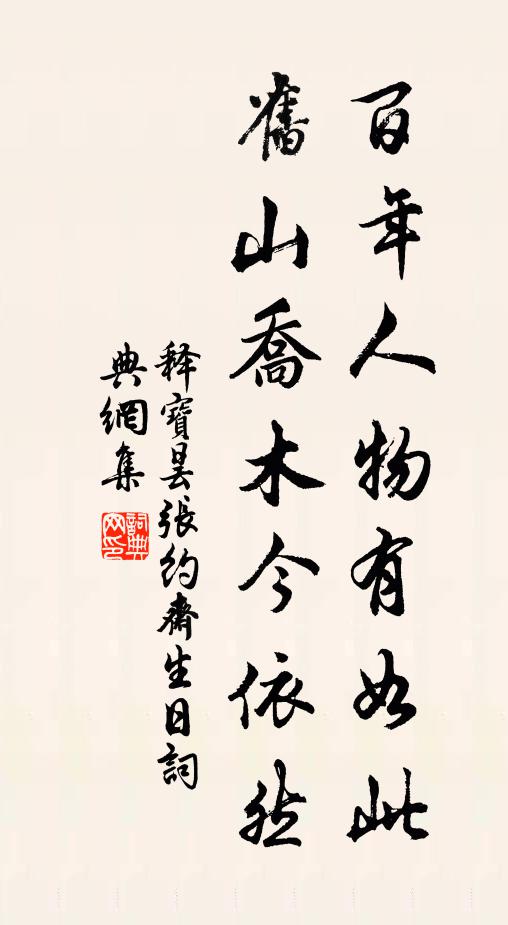 百年人物有如此
舊山喬木今依然
释寶曇張約齋生日詞
典網集
詞典網印